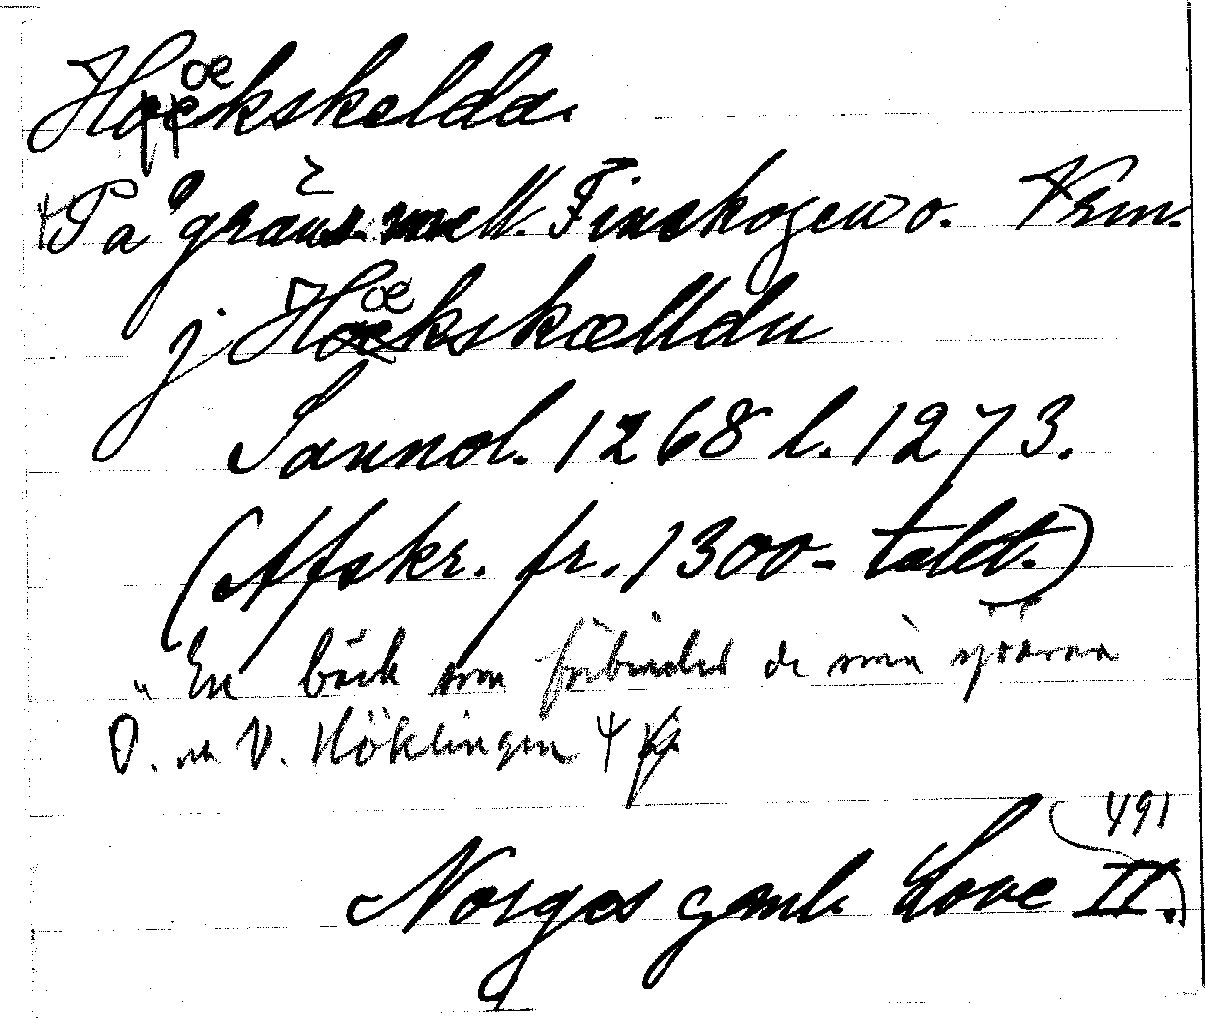 Hœkskelda.
På gräns. mell. Finskogen o. Vrm.
j Hœkskælldu
Sannol. 1268 l. 1273.
(Afskr. fr. 1300-talet.)
"En bäck som förbinder de små sjöarna
Ö. och V. Höklingen
491
Norges gamle Love II.)